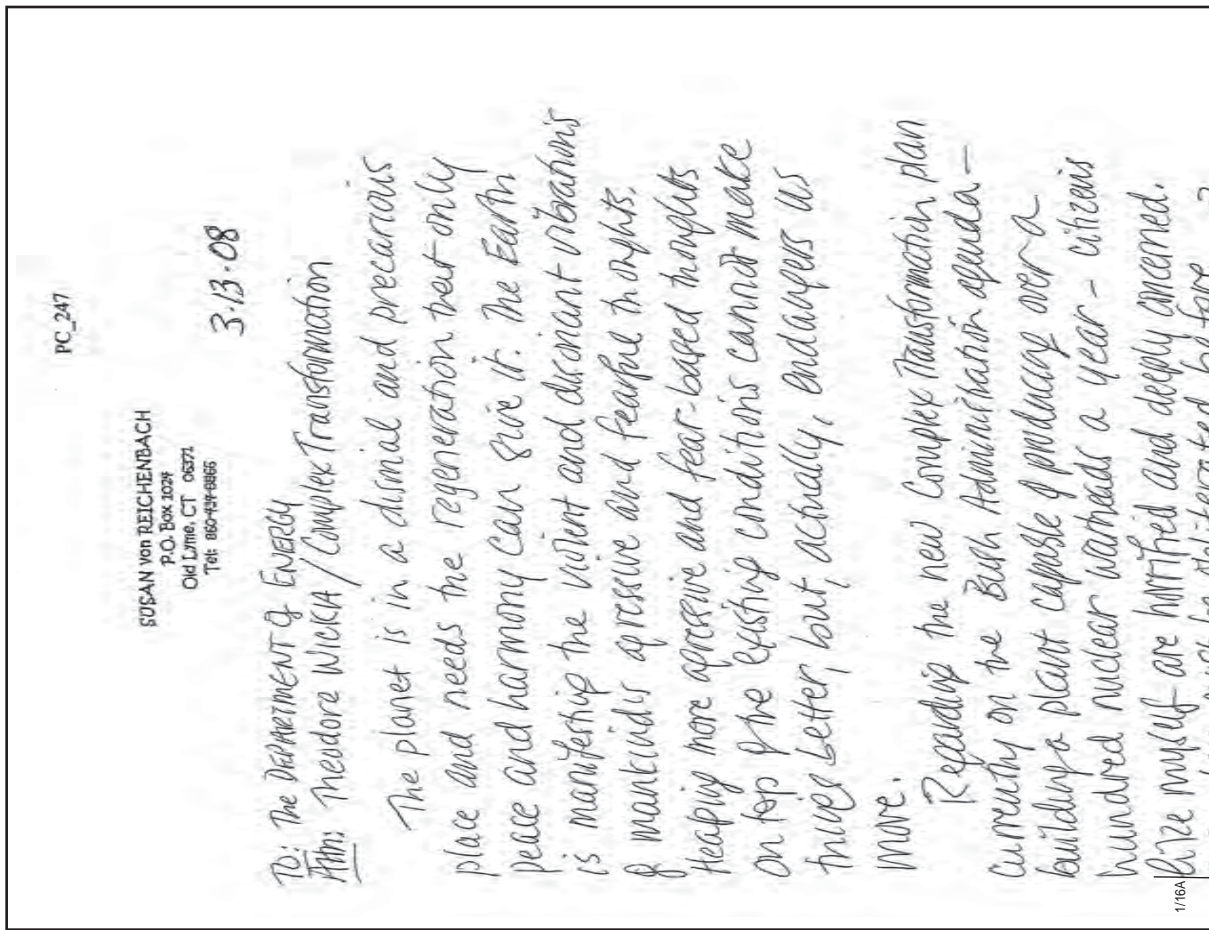 PC_247
SUSAN von REICHENBACH
P.O. Box 1024
Old Lyme, CT 06371
Tel: 860-434-6866
3.13.08
To: The DEPARTMENT of ENERGY
Attn: Theodore WICKA / Complex Transformation
The planet is in a dismal and precarious
place and needs the regeneration that only
peace and harmony can give it. The Earth
is manifesting the violent and discordant vibrations
of mankind's agressive and fearful thoughts.
Heaping more agressive and fear-based thoughts
on top of the existing conditions cannot make
things better, but, actually, endangers us
more.
Regarding the new Complex Transformation plan
currently on the Bush Administration agenda —
building a plant capable of producing over a
hundred nuclear warheads a year — citizens
like myself are horrified and deeply concerned.
1/16A